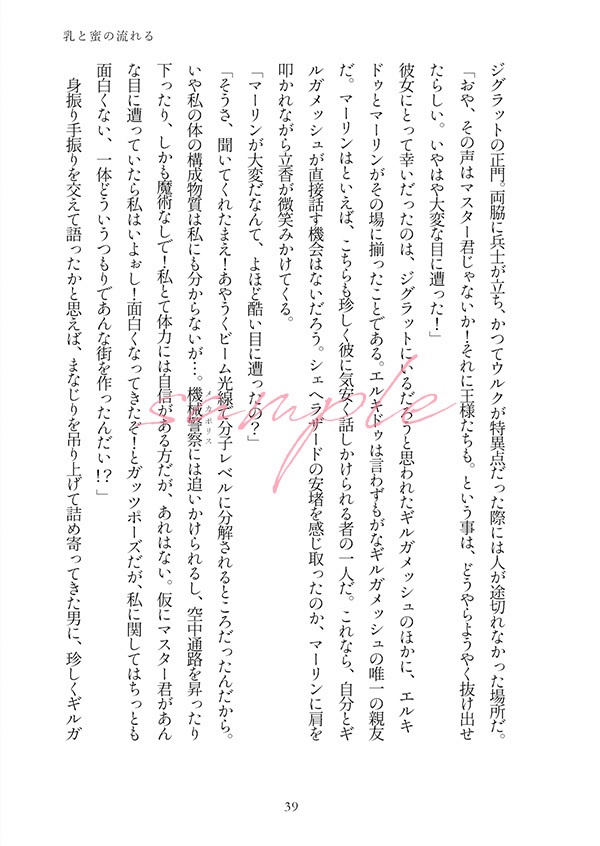 乳と蜜の流れる
ジグラットの正門。両脇に兵士が立ち、かつてウルクが特異点だった際には人が途切れなかった場所だ。
「おや、その声はマスター君じゃないか！それに王様たちも。という事は、どうやらようやく抜け出せ
たらしい。いやはや大変な目に遭った！」
彼女にとって幸いだったのは、ジグラットにいるだろうと思われたギルガメッシュのほかに、エルキ
ドゥとマーリンがその場に揃ったことである。エルキドゥは言わずもがなギルガメッシュの唯一の親友
だ。マーリンはといえば、こちらも珍しく彼に気安く話しかけられる者の一人だ。これなら、自分とギ
ルガメッシュが直接話す機会はないだろう。シェヘラザードの安堵を感じ取ったのか、マーリンに肩を
叩かれながら立香が微笑みかけてくる。
「マーリンが大変だなんて、よほど酷い目に遭ったの？」
「そうさ、聞いてくれたまえ！あやうくビーム光線で分子レベルに分解されるところだったんだから。
いや私の体の構成物質は私にも分からないが…。機械警察には追いかけられるし、空中通路を昇ったり
メカポリス
下ったり、しかも魔術なしで！私とて体力には自信がある方だが、あれはない。仮にマスター君があん
な目に遭っていたら私はいよぉし！面白くなってきたぞ！とガッツポーズだが、私に関してはちっとも
面白くない、一体どういうつもりであんな街を作ったんだい！？」
身振り手振りを交えて語ったかと思えば、まなじりを吊り上げて詰め寄ってきた男に、珍しくギルガ
sample
39